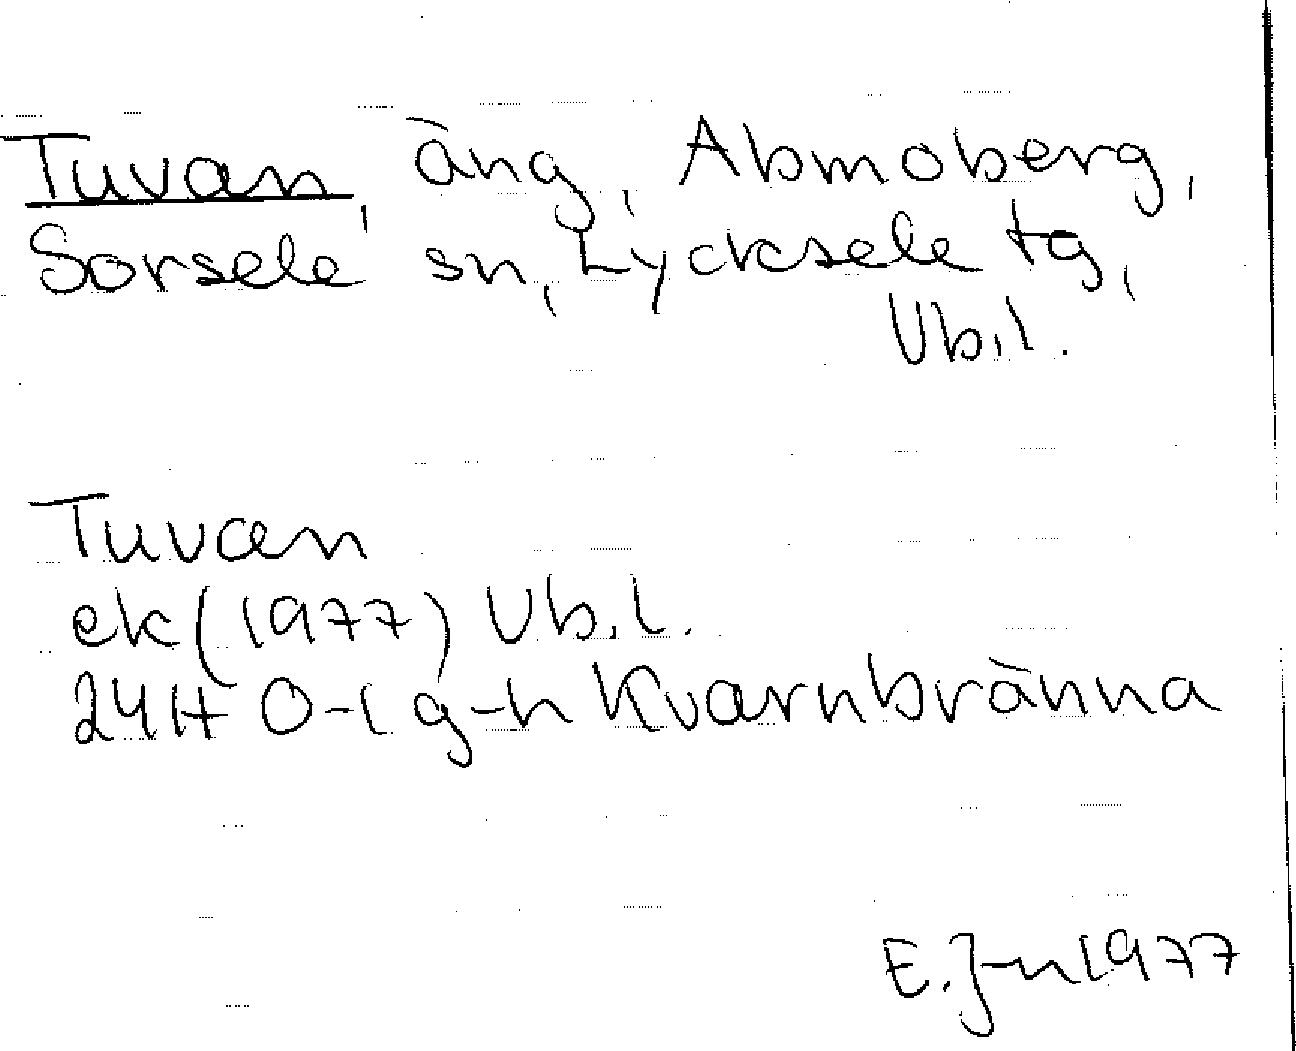 Tuvan, äng, Abmoberg,
Sorsele sn, Lycksele tg,
Vb.l.
Tuvan
ek (1977) Vb.l.
24H 0-1 g-h Kvarnbränna
E. J-n 1977